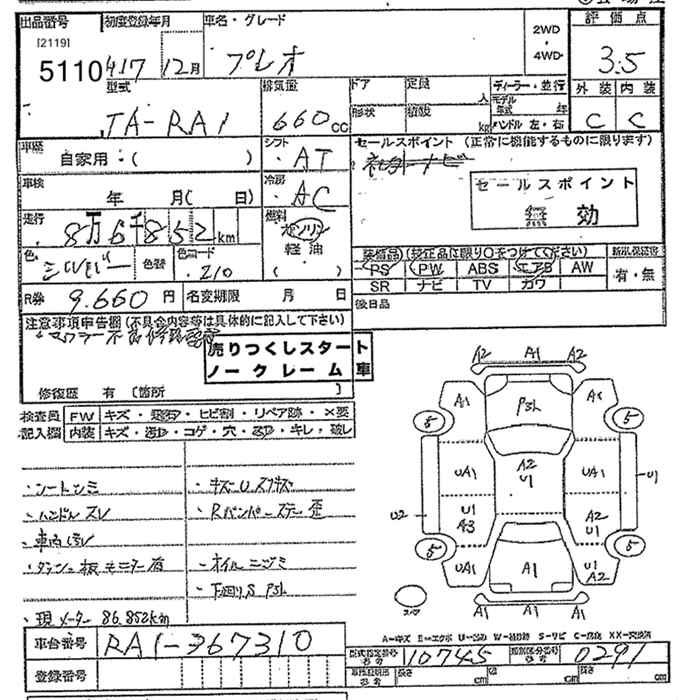 出品番号
[2119]
5110
初度登録年月
417 12月
車名・グレード
プレオ
2WD・
4WD・
評価点
3.5
型式
TA-RA1
排気量
660cc
ドア
形状
定員
人
積載
kg
ディーラー・並行
モデル年式 年
ハンドル 左・右
外装 内装
C C
車歴
自家用:( )
シフト
AT
セールスポイント (正常に機能するものに限ります)
セールスポイント
無効
車検
年 月( 日)
冷房
AC
走行
8万6千852km
燃料
ガソリン
軽油
( )
色
シルバー
色替
色コード
210
装備品 (純正品に限り○をつけてください)
PS PW ABS エアB AW
SR ナビ TV カワ
新車保証書
有・無
R券 9.660円
名変期限 月 日
後日品
注意事項申告欄(不具合内容等は具体的に記入して下さい)
売りつくしスタート
ノークレーム車
修復歴 有 [箇所 ]
検査員
記入欄
FW キズ・飛石・ヒビ割・リペア跡・×要
内装 キズ・汚れ・コゲ・穴・スレ・キレ・破レ
、シートシミ
、ハンドルスレ
、車内汚レ
、ダッシュ板モニター有
、現メーター 86.852km
、キズUスリキズ
、Rバンパーステー歪
、オイルニジミ
、下回りS PSL
A2 A1 A2
A1 PSL A1
5 5
UA1 A2 U1 UA1
U2 U1 A3 A2 U1 U1
5 5
UA1 A1 U1 A2
A1 A1
スペア
A-キズ E-エクボ U-凹み W-補修跡 S-サビ C-腐食 XX-交換済
車台番号 RA1-367310
登録番号
型式指定番号 参考 10745
類別区分番号 参考 0291
長さ cm
幅 cm
高さ cm